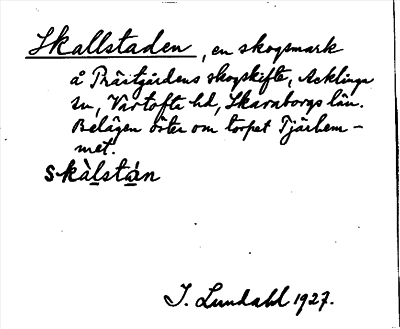 Skallstaden, en skogsmark
å Prästgårdens skogskifte, Acklinga
sn, Vartofta hd, Skaraborgs län.
Belägen öster om torpet Tjärhem-
met.
skàlstán
I. Lundahl 1927.